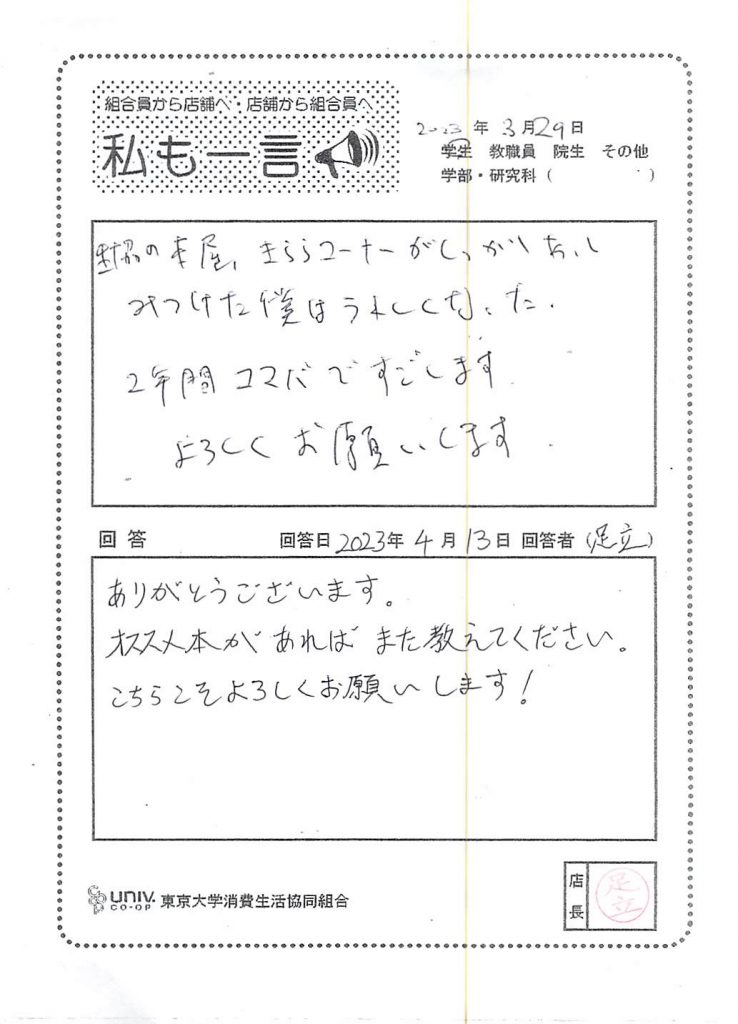 組合員から店舗へ・店舗から組合員へ
私も一言
2023年3月29日
学生 教職員 院生 その他
学部・研究科( )
生協の本屋、きららコーナーがしっかりあっし
みつけた僕はうれしくなった.
2年間コマバですごします.
よろしくお願いします.
回答 回答日2023年4月13日 回答者(足立)
ありがとうございます。
オススメ本があればまた教えてください。
こちらこそよろしくお願いします!
UNIV. CO-OP 東京大学消費生活協同組合
店長 足立